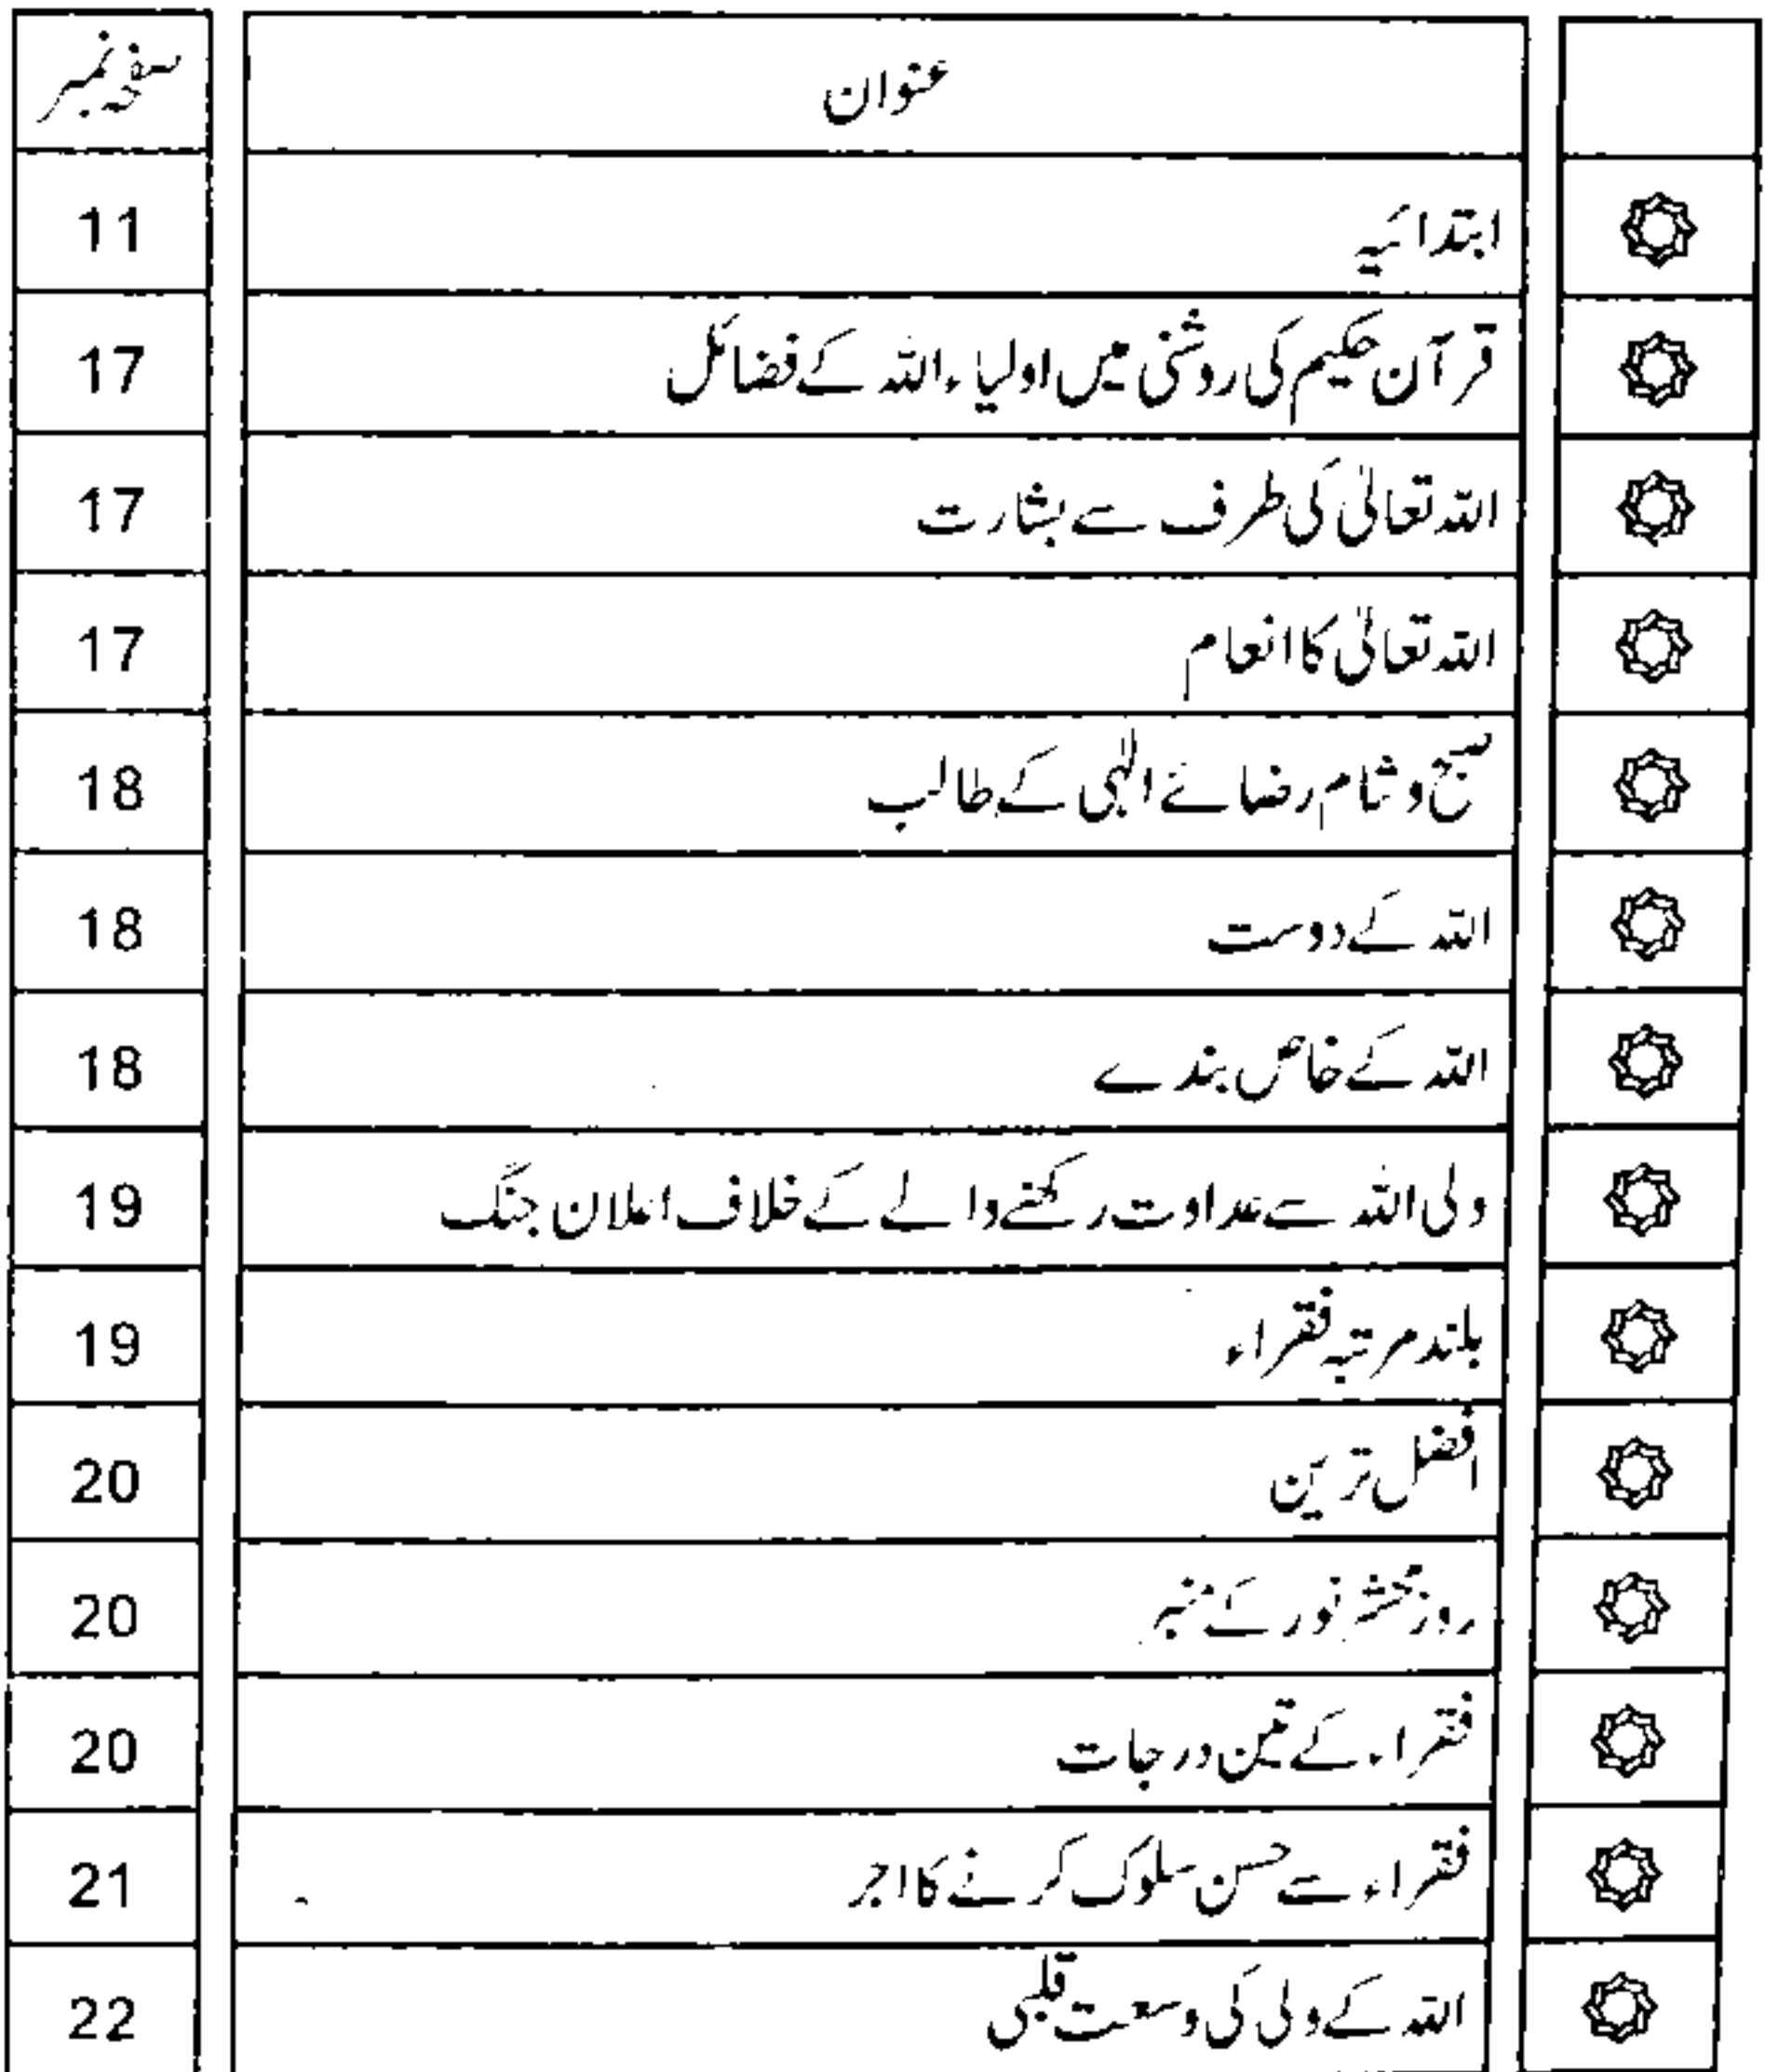 عنوان صفحہ نمبر
ابتدائیہ 11
قرآن حکیم کی روشنی میں اولیاء اللہ کے فضائل 17
اللہ تعالیٰ کی طرف سے بشارت 17
اللہ تعالیٰ کا انعام 17
صبح و شام رضائے الٰہی کے طالب 18
اللہ کے دوست 18
اللہ کے خاص بندے 18
ولی اللہ سے عداوت رکھنے والے کے خلاف اعلان جنگ 19
بلند مرتبہ فقراء 19
افضل ترین 20
روز محشر نور کے منبر 20
فقراء کے تین درجات 20
فقراء سے حسن سلوک کرنے کا اجر 21
اللہ کے ولی کی وسعت قلبی 22